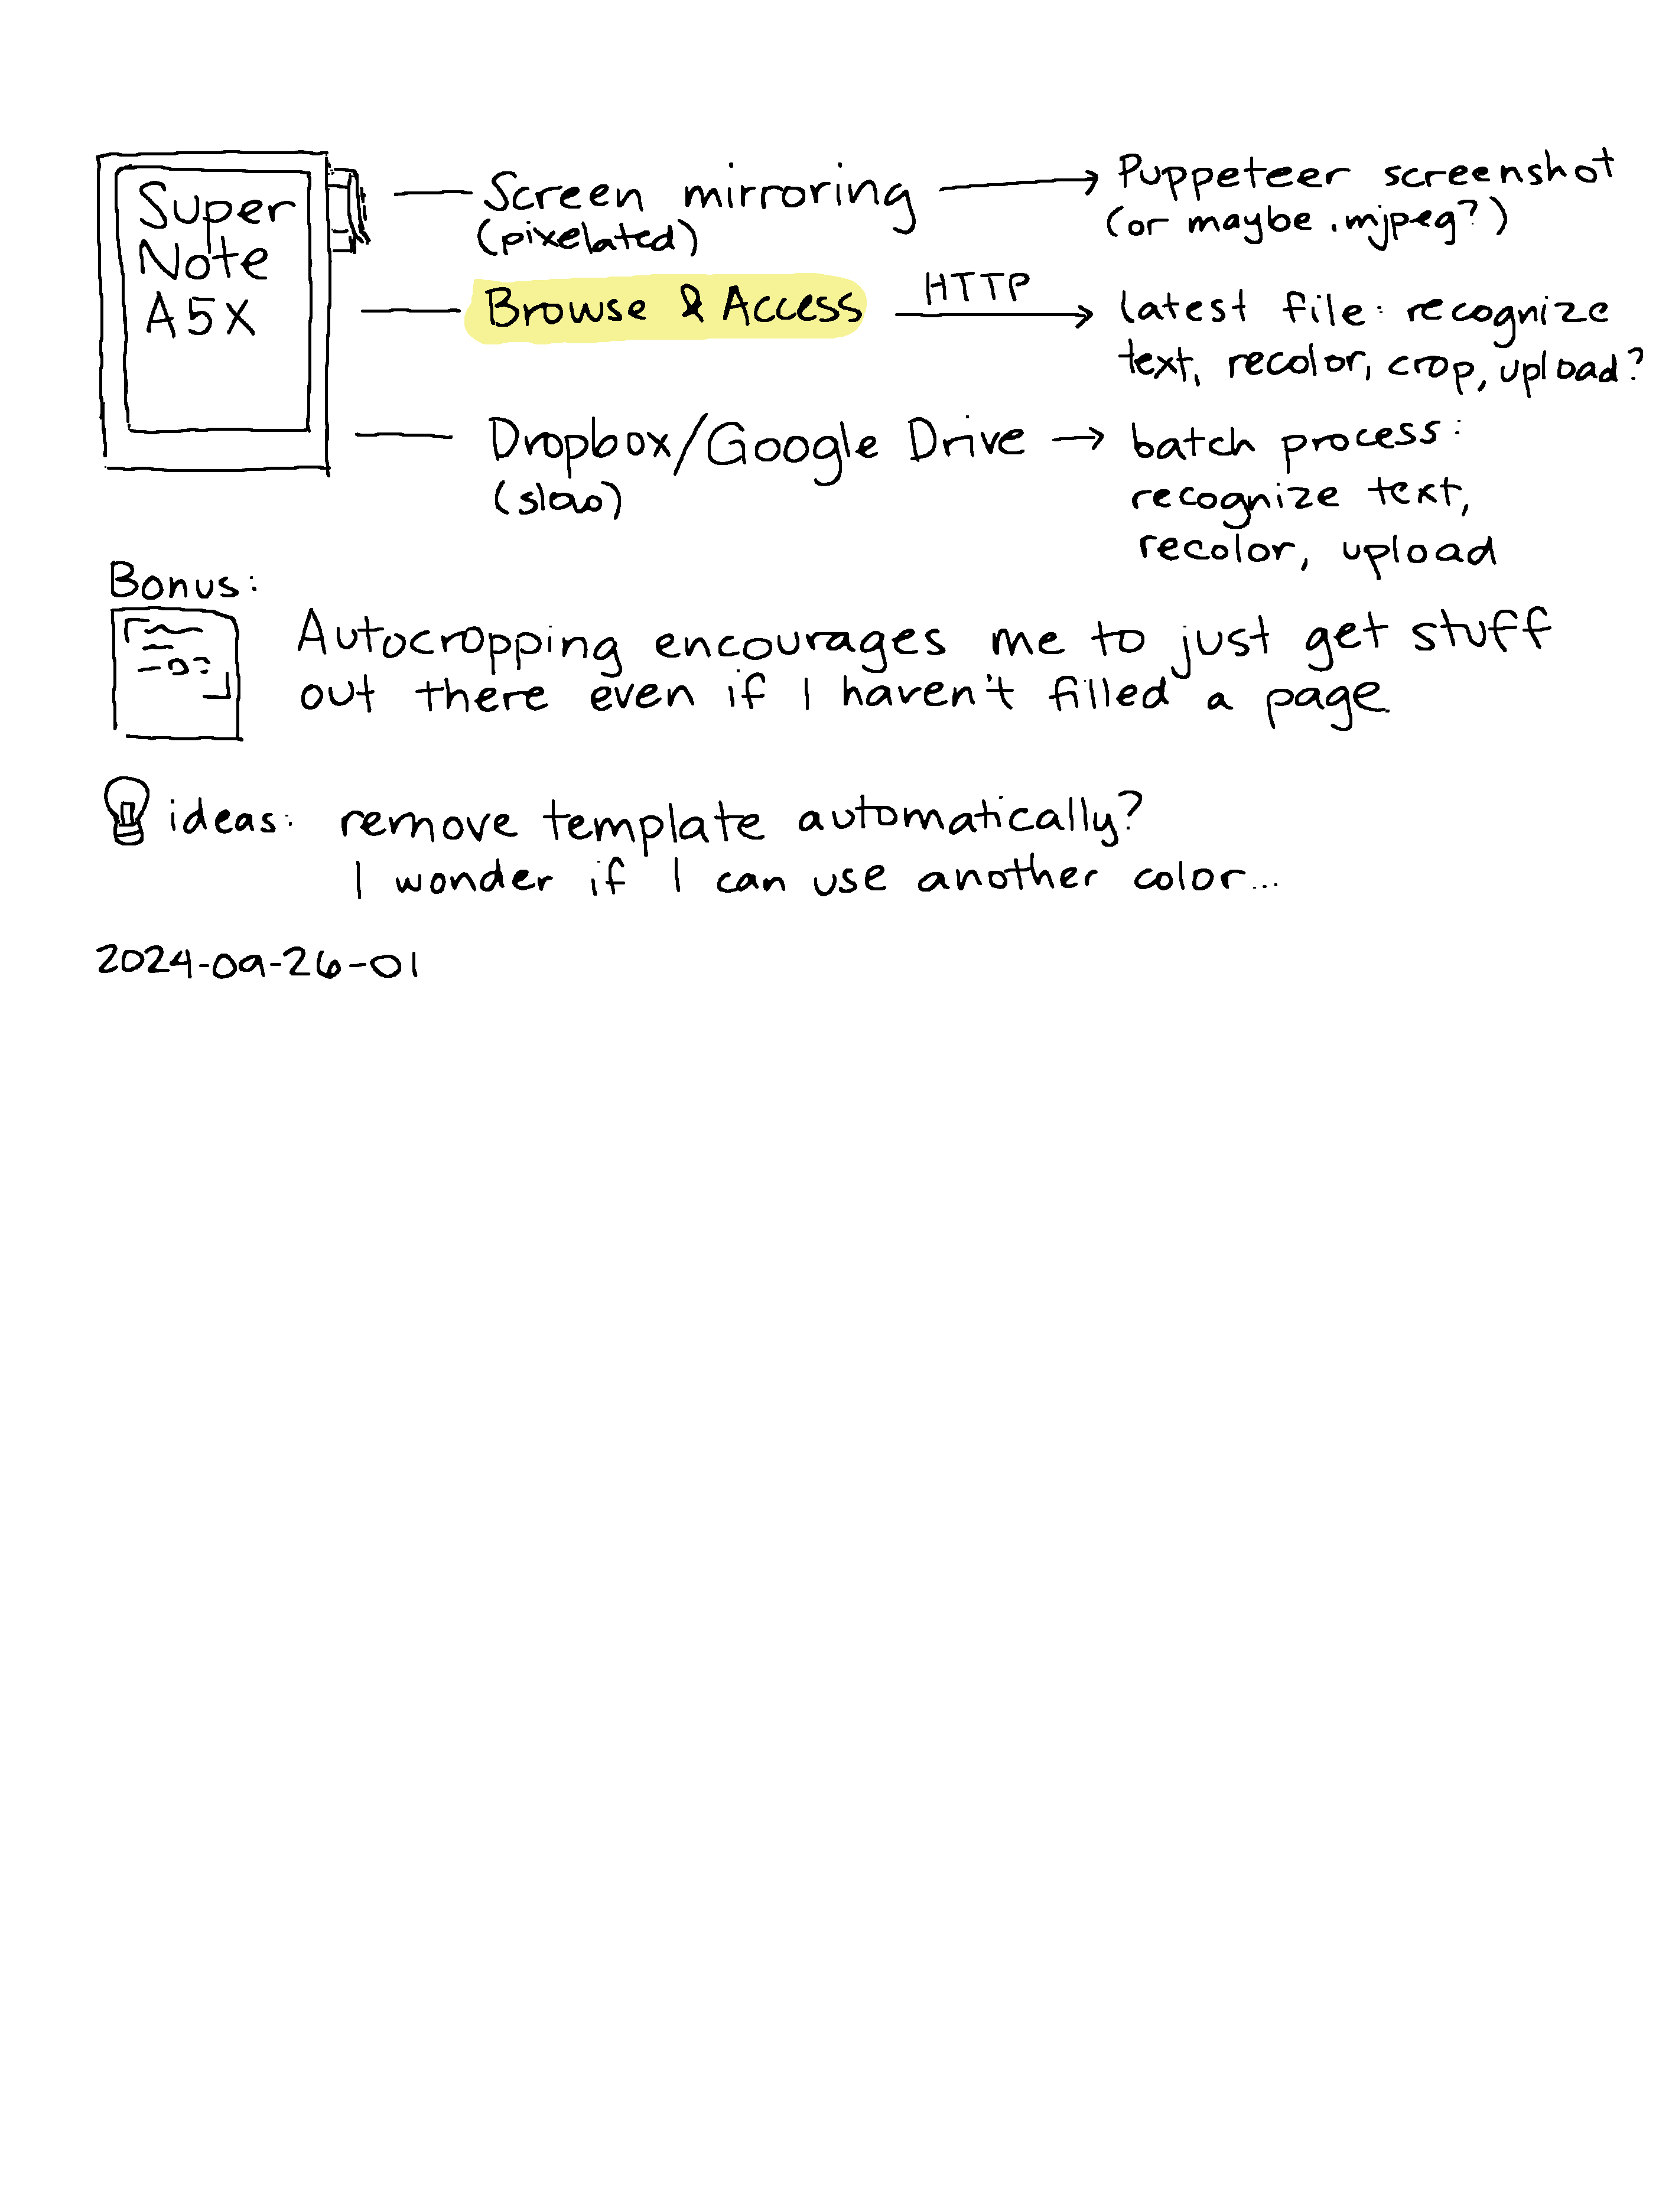 Super
Note
A5X
Screen mirroring
(pixelated)
Puppeteer screenshot
(or maybe .mjpeg?)
Browse & Access
HTTP
latest file: recognize
text, recolor, crop, upload?
Dropbox/Google Drive
(slow)
batch process:
recognize text,
recolor, upload
Bonus:
Autocropping encourages me to just get stuff
out there even if I haven't filled a page.
ideas: remove template automatically?
I wonder if I can use another color...
2024-09-26-01